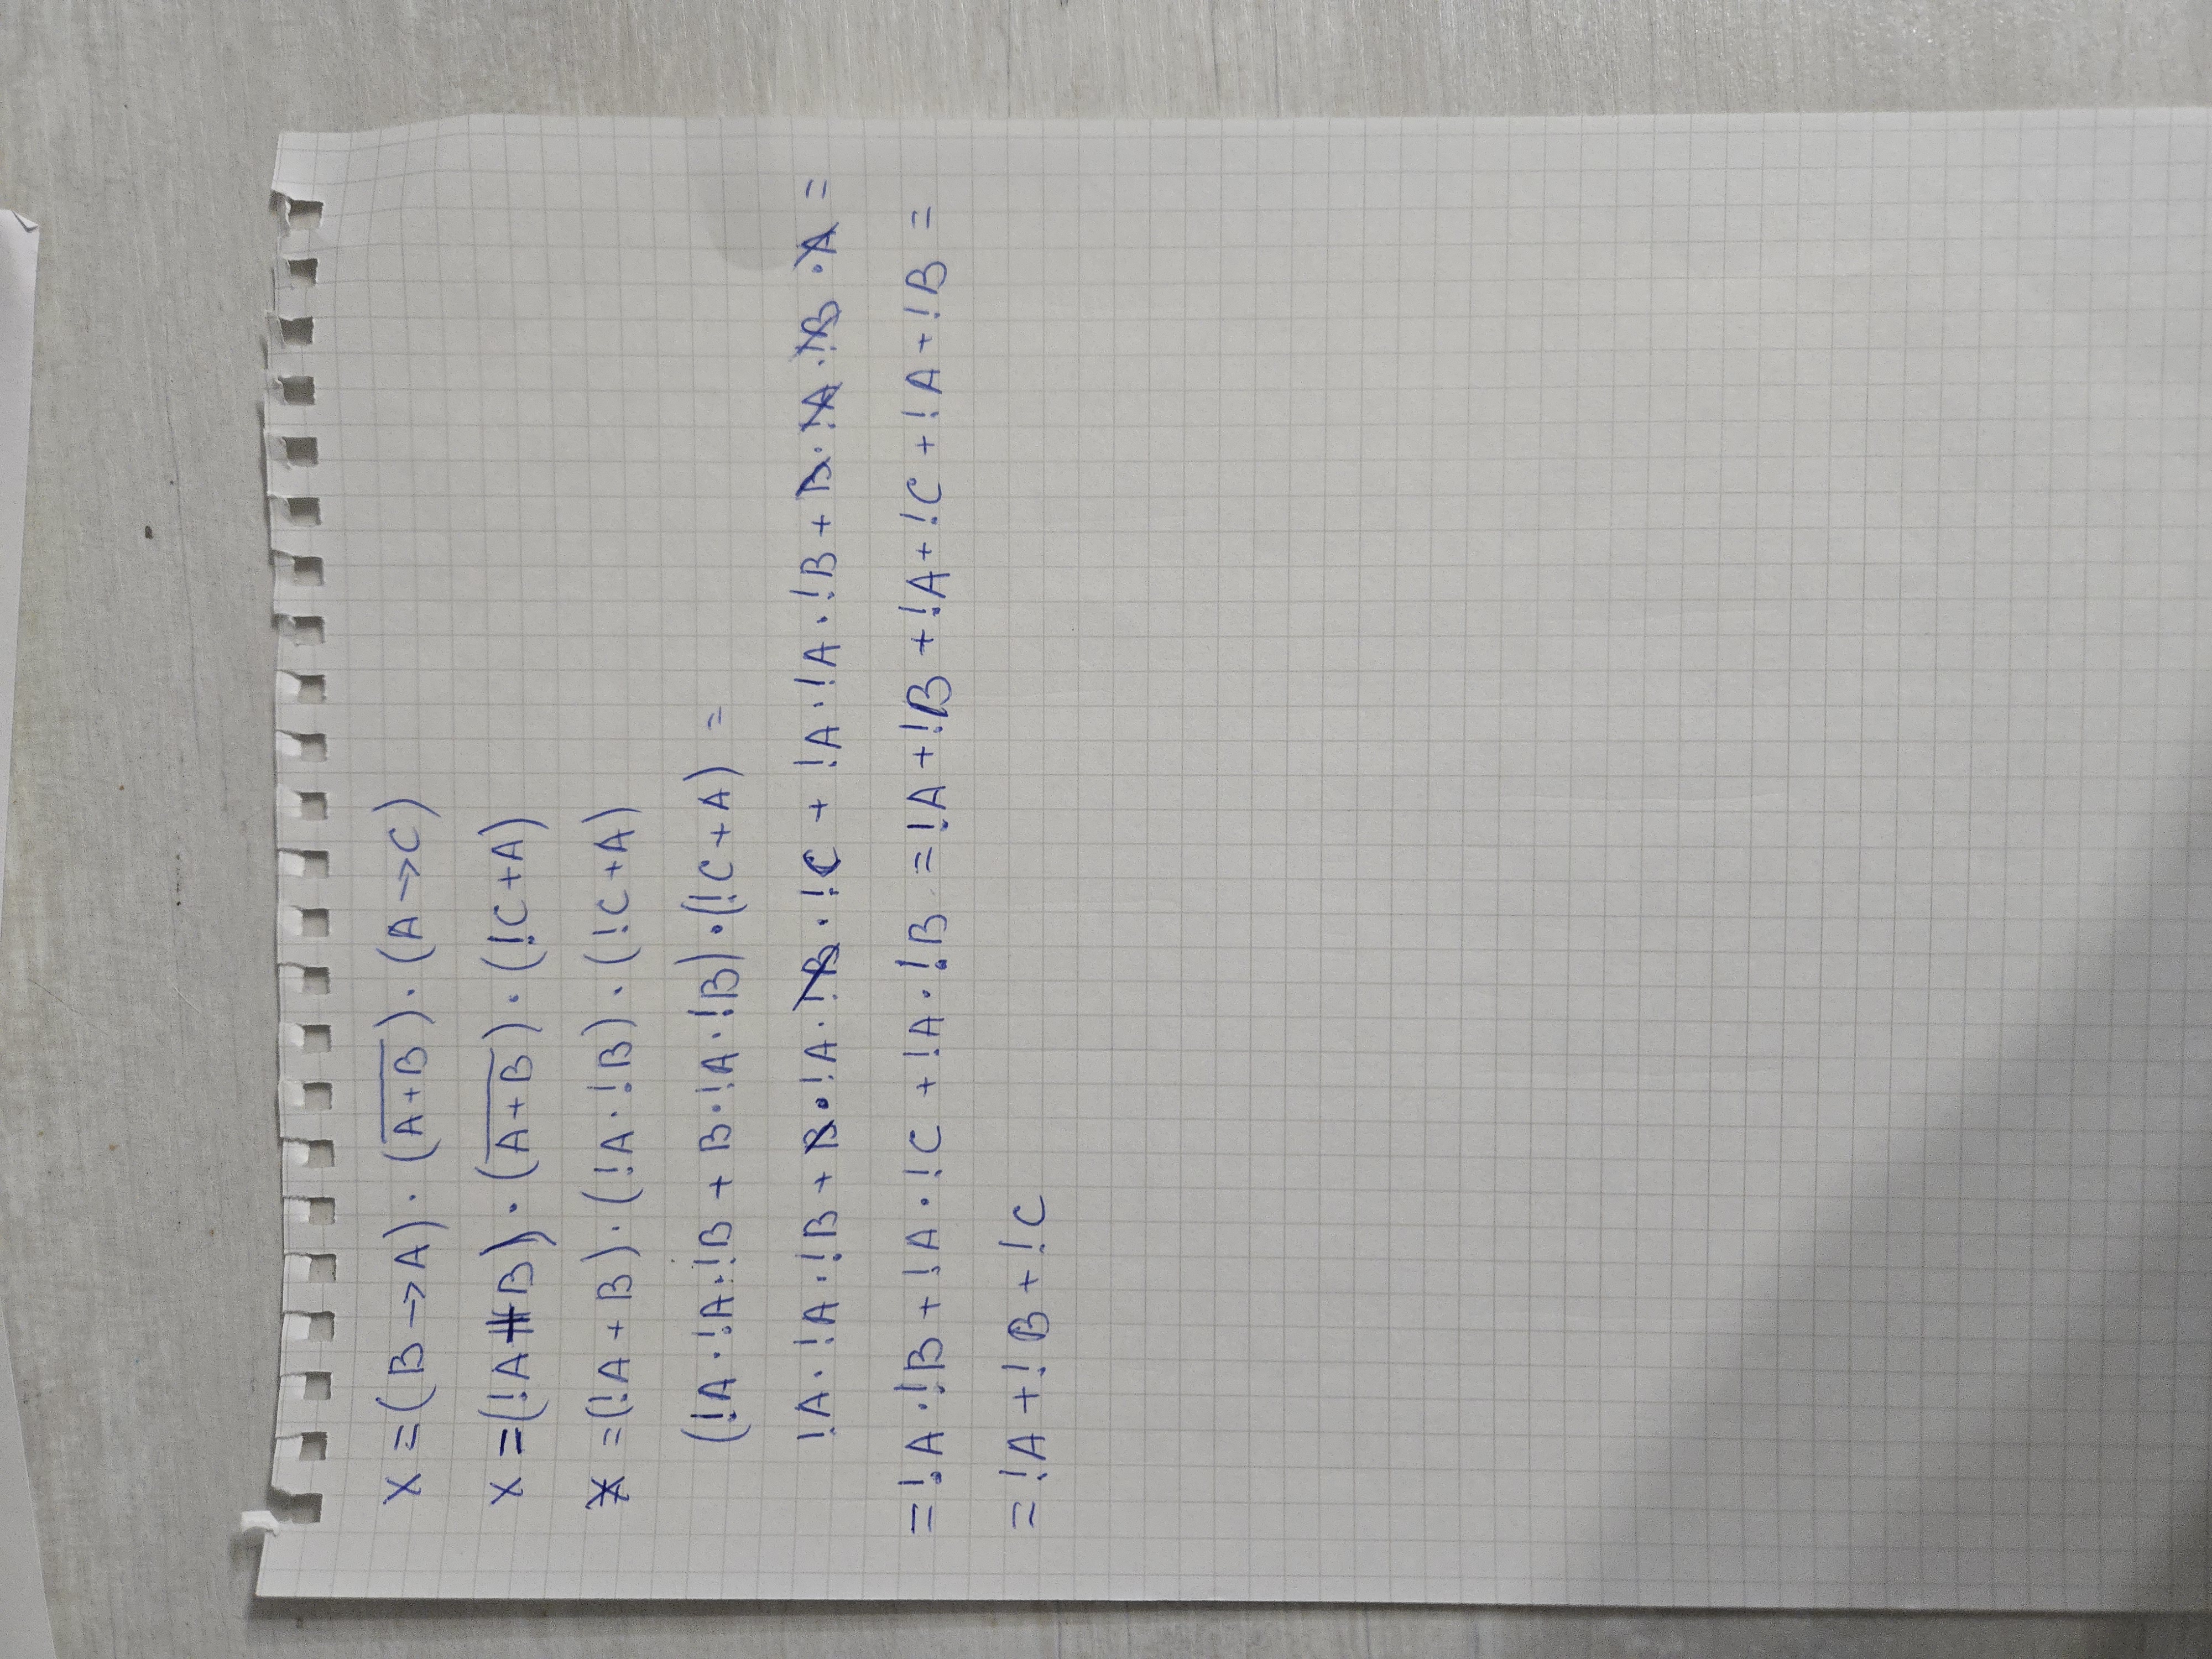 X = (B → A) · (A+B) · (A → C)
X = (!A + B) · (A+B) · (!C + A)
X = (!A + B) · (!A · !B) · (!C + A)
(!A · !A · !B + B · !A · !B) · (!C + A) =
!A · !A · !B + B · !A · !B · !C + !A · !A · !B + B · !A · !B · A =
= !A · !B + !A · !C + !A · !B = !A + !B + !A + !C + !A + !B =
= !A + !B + !C